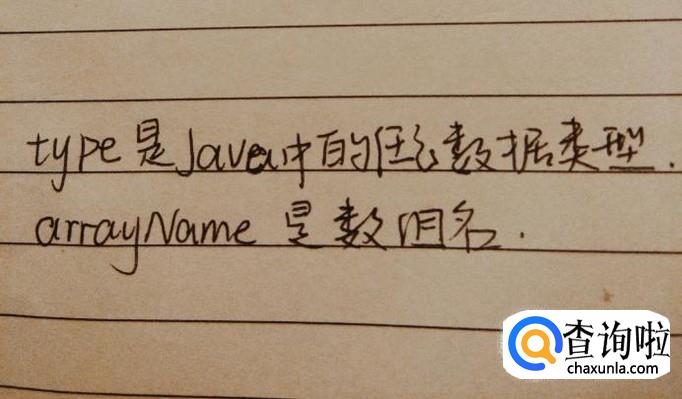 type是Java中的任意数据类型.
arrayName 是数组名.
查询啦
chaxunla.com